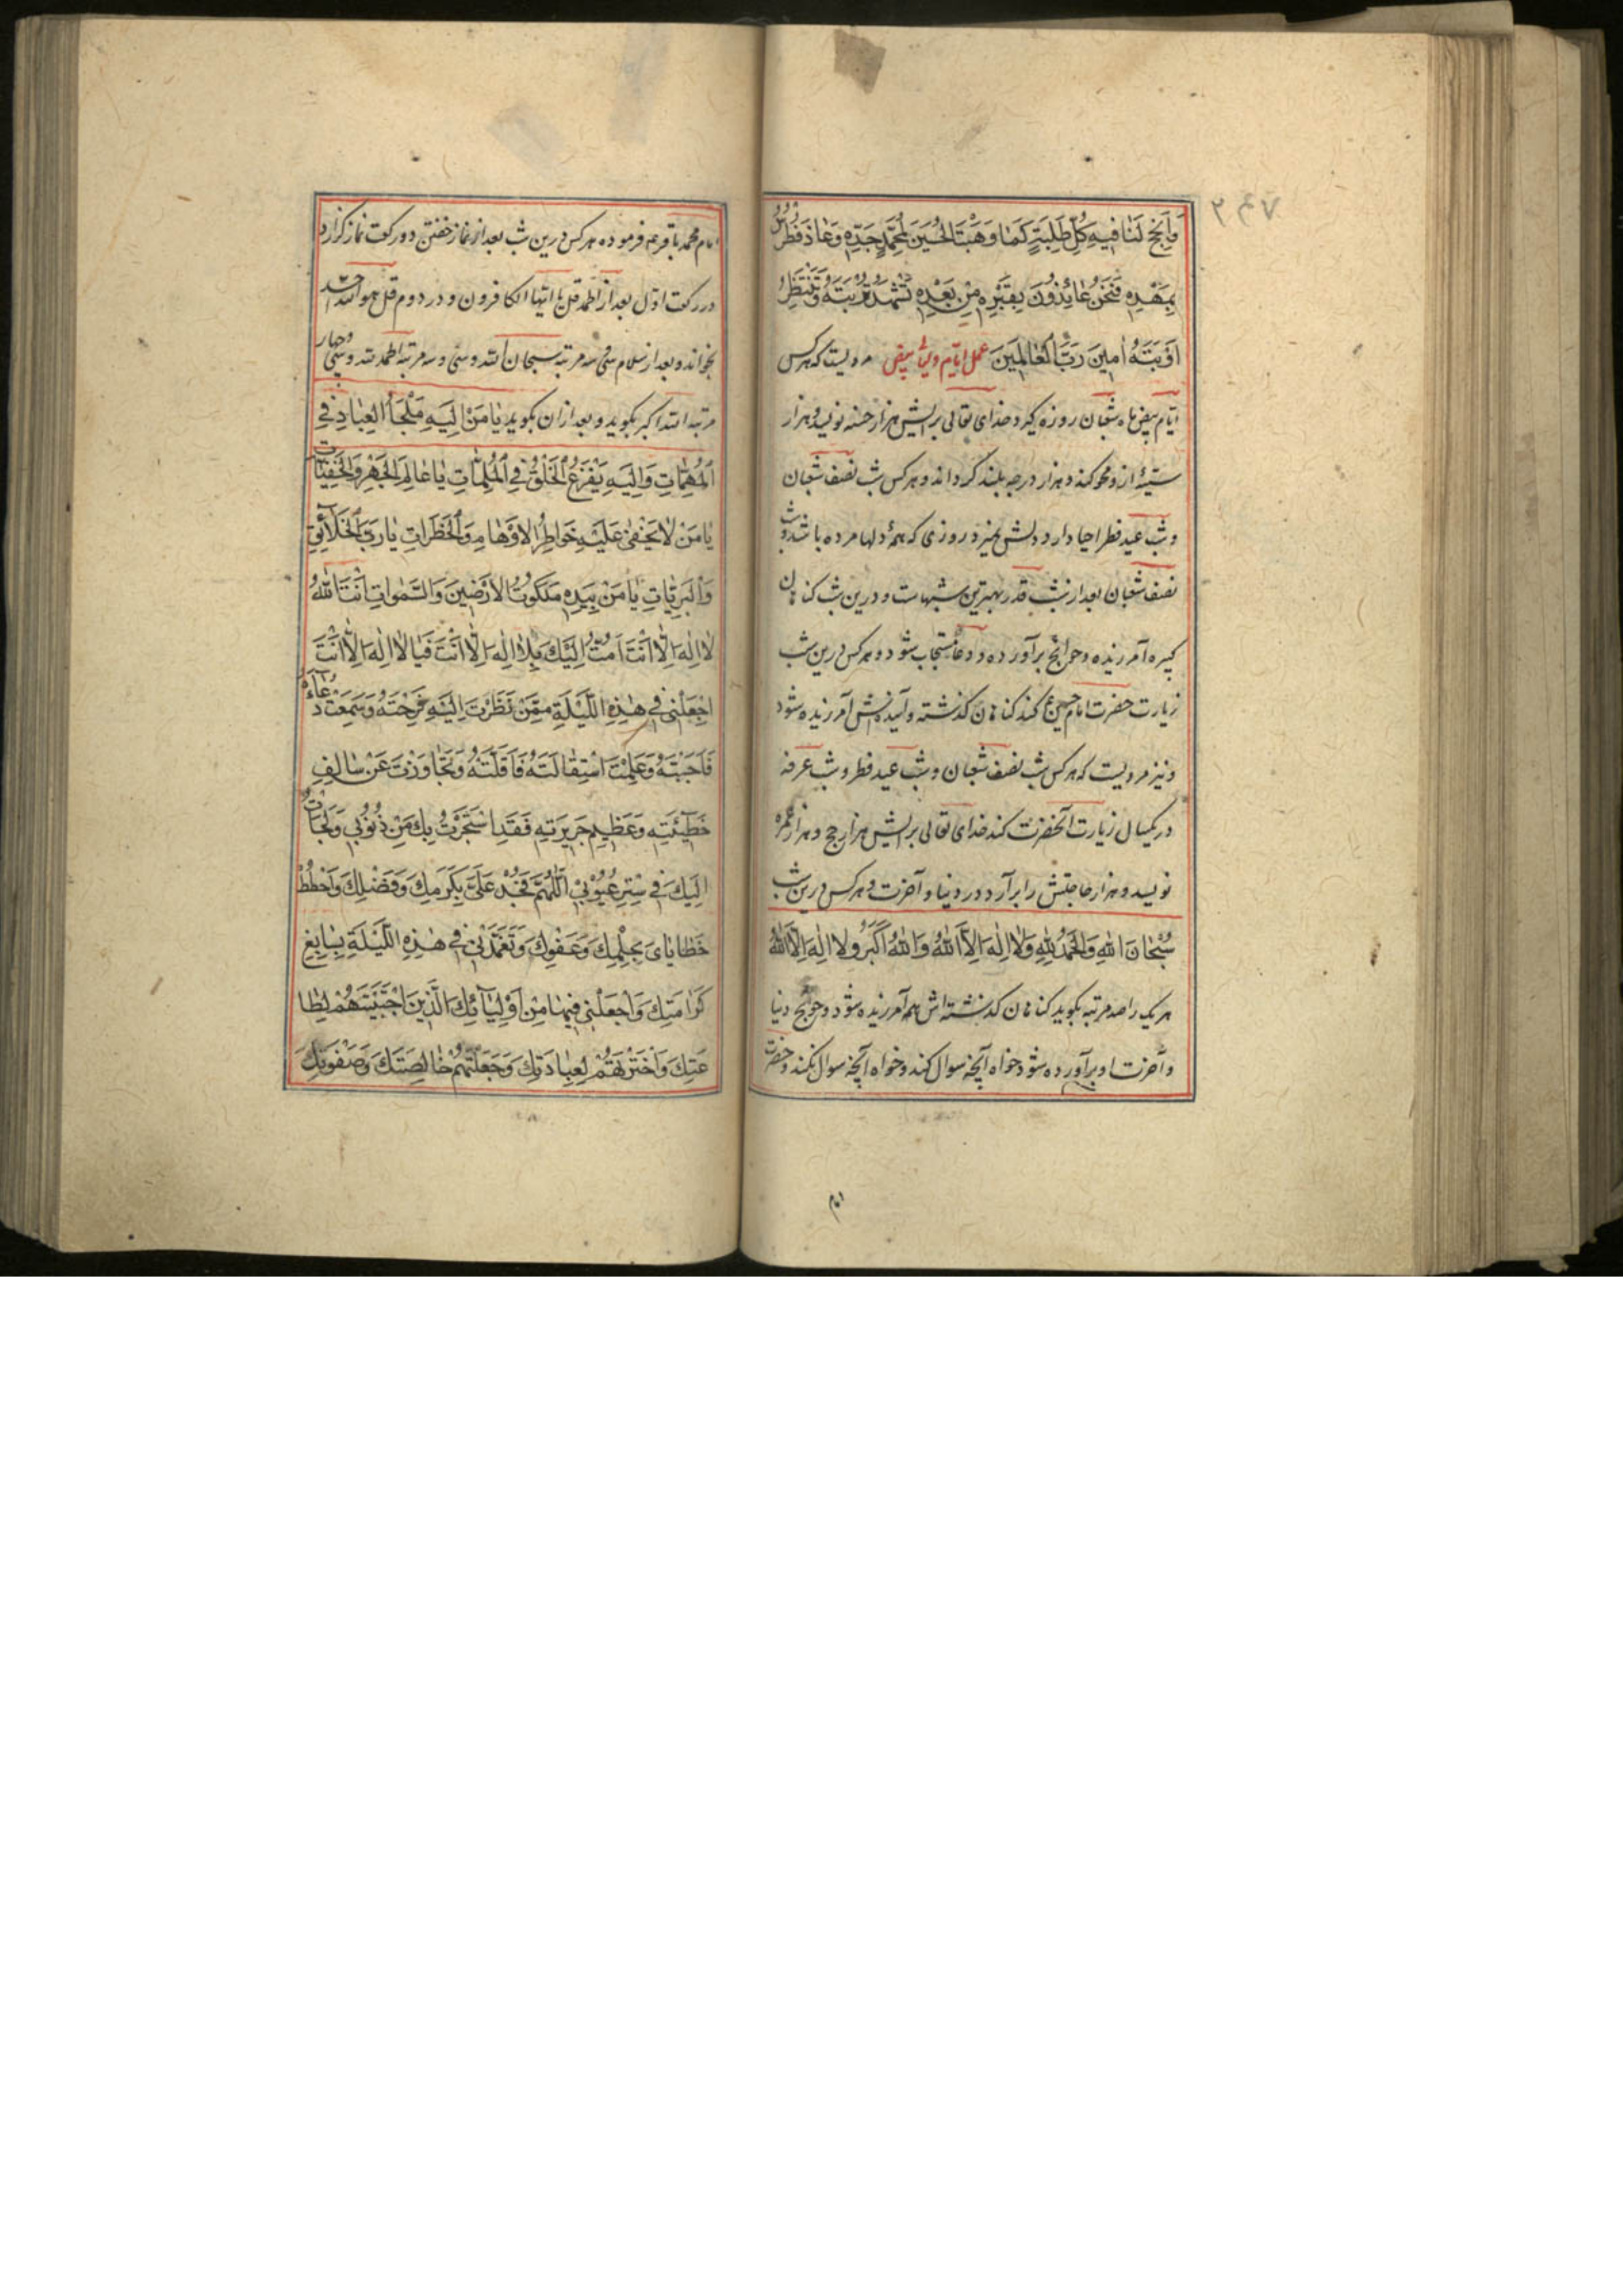 وَاَنْجِحْ لَنَا فِيهِ كُلَّ طَلِبَةٍ كَمَا وَهَبْتَ الْحُسَيْنَ لِمُحَمَّدٍ جَدِّهِ وَعَاذَ فُطْرُسُ
بِمَهْدِهِ فَنَحْنُ عَائِذُونَ بِقَبْرِهِ مِنْ بَعْدِهِ نَشْهَدُ تُرْبَتَهُ وَنَنْتَظِرُ
اَوْبَتَهُ اٰمِينَ رَبَّ الْعَالَمِينَ عمل ایام ولیالی بیض مرویست که هرکس
ایام بیض ماه شعبان روزه کیرد خدای تعالی برایش هزار حسنه نویسد و هزار
سیّئه ازو محو کند و هزار درجه بلند کرداند و هرکس شب نصف شعبان
و شب عید فطر احیا دارد دلش نمیرد روزی که همهٔ دلها مرده باشد و شب
نصف شعبان بعد از شب قدر بهترین شبهاست و درین شب کناهان
کبیره آمرزیده و حوایج برآورده و دعا مستجاب شود و هرکس درین شب
زیارت حضرت امام حسین ع کند کناهان کذشته و آینده‌اش آمرزیده شود
و نیز مرویست که هرکس شب نصف شعبان و شب عید فطر و شب عرفه
در یکسال زیارت آنحضرت کند خدای تعالی برایش هزار حج و هزار عمره
نویسد و هزار حاجتش را برآرد در دنیا و آخرت و هرکس درین شب
سُبْحَانَ اللهِ وَالْحَمْدُ لِلّٰهِ وَلَا اِلٰهَ اِلَّا اللهُ وَاللهُ اَكْبَرُ ولا اِلٰهَ اِلَّا اللهُ
هریک را صد مرتبه بکوید کناهان کذشته‌اش هم آمرزیده شود و حوایج دنیا
و آخرت او برآورده شود خواه آنچه سوال کند و خواه آنچه سوال نکند و حضرت
امام
امام محمد باقر ع فرموده هرکس درین شب بعد از نماز خفتن دو رکعت نماز کزارد
در رکعت اول بعد از الحمد قل یا ایها الکافرون و در دوم قل هو الله احد
بخواند و بعد از سلام سی و سه مرتبه سبحان الله و سی و سه مرتبه الحمد لله و سی و چهار
مرتبه الله اکبر بکوید و بعد ازان بکوید يٰا مَنْ اِلَيْهِ مَلْجَأُ الْعِبٰادِ فِي
الْمُهِمّٰاتِ وَاِلَيْهِ يَفْزَعُ الْخَلْقُ فِي الْمُلِمّٰاتِ يٰا عٰالِمَ الْجَهْرِ وَالْخَفِيّٰاتِ
يٰا مَنْ لٰا يَخْفىٰ عَلَيْهِ خَوٰاطِرُ الْاَوْهٰامِ وَالْخَطَرٰاتِ يٰا رَبَّ الْخَلٰآئِقِ
وَالْبَرِيّٰاتِ يٰا مَنْ بِيَدِهِ مَلَكُوتُ الْاَرَضِينَ وَالسَّمٰوٰاتِ اَنْتَ اللهُ
لٰا اِلٰهَ اِلَّا اَنْتَ اَمُتُّ اِلَيْكَ بِلٰا اِلٰهَ اِلَّا اَنْتَ فَيٰا لٰا اِلٰهَ اِلَّا اَنْتَ
اجْعَلْنِي فِي هٰذِهِ اللَّيْلَةِ مِمَّنْ نَظَرْتَ اِلَيْهِ فَرَحِمْتَهُ وَسَمِعْتَ دُعٰآءَهُ
فَاَجَبْتَهُ وَعَلِمْتَ اسْتِقٰالَتَهُ فَاَقَلْتَهُ وَتَجٰاوَزْتَ عَنْ سٰالِفِ
خَطِيٓئَتِهِ وَعَظِيمِ جَرِيرَتِهِ فَقَدِ اسْتَجَرْتُ بِكَ مِنْ ذُنُوبِي وَلَجَأْتُ
اِلَيْكَ فِي سَتْرِ عُيُوبِي اَللّٰهُمَّ فَجُدْ عَلَيَّ بِكَرَمِكَ وَفَضْلِكَ وَاحْطُطْ
خَطٰايٰايَ بِحِلْمِكَ وَعَفْوِكَ وَتَغَمَّدْنِي فِي هٰذِهِ اللَّيْلَةِ بِسٰابِغِ
كَرٰامَتِكَ وَاجْعَلْنِي فِيهٰا مِنْ اَوْلِيٰآئِكَ الَّذِينَ اجْتَبَيْتَهُمْ لِطٰا
عَتِكَ وَاخْتَرْتَهُمْ لِعِبٰادَتِكَ وَجَعَلْتَهُمْ خٰالِصَتَكَ وَصَفْوَتَكَ